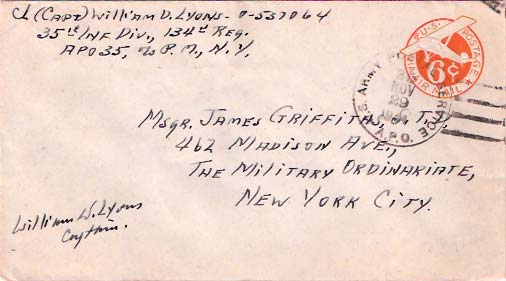 Ch (Capt) William D. Lyons - O-537064
35th Inf Div., 134th Reg.
APO 35, % P.M., N.Y.
U.S. POSTAGE
6¢
VIA AIR MAIL
U.S. ARMY
NOV
29
A.P.O.
Msgr. James Griffiths,
462 Madison Ave.,
The Military Ordinariate,
New York City.
William D. Lyons
Captain.